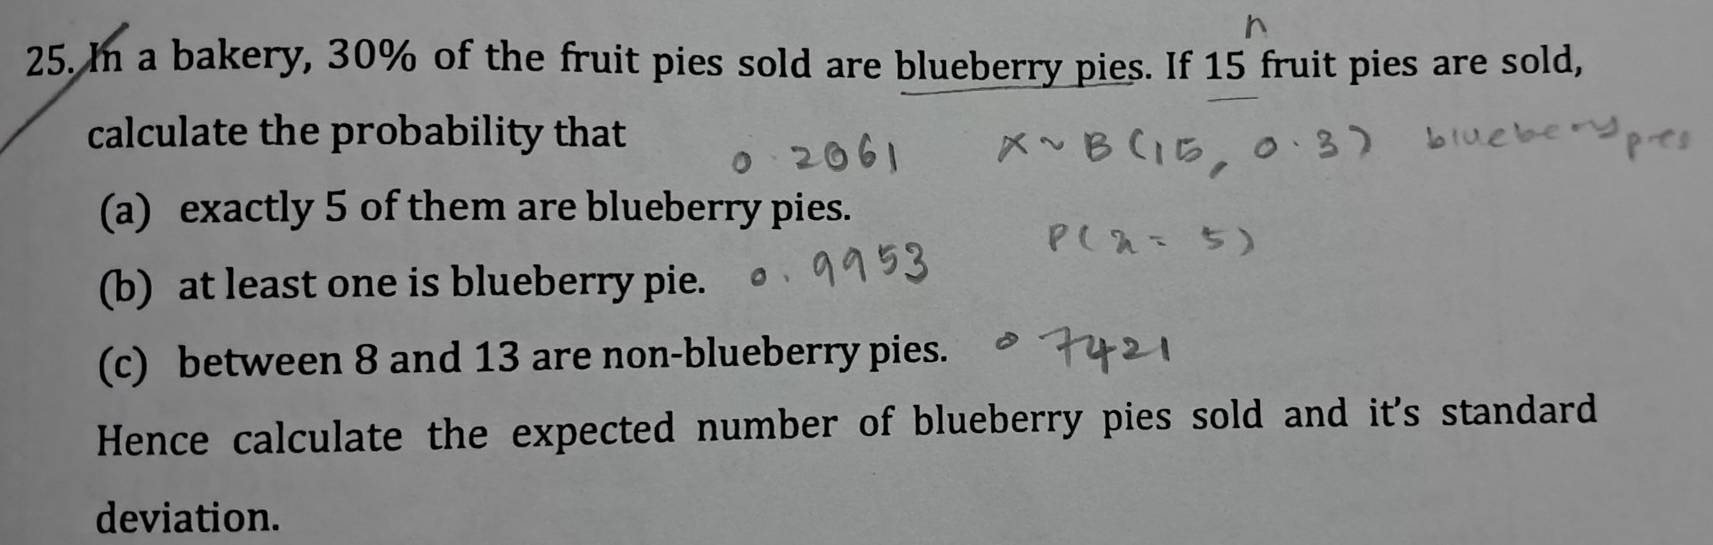 n
25. In a bakery, 30% of the fruit pies sold are blueberry pies. If 15 fruit pies are sold,
calculate the probability that
0.2061 X~B(15, 0.3) blueberry pies
(a) exactly 5 of them are blueberry pies.
P(x = 5)
(b) at least one is blueberry pie. 0.9953
(c) between 8 and 13 are non-blueberry pies. 0 7421
Hence calculate the expected number of blueberry pies sold and it's standard
deviation.